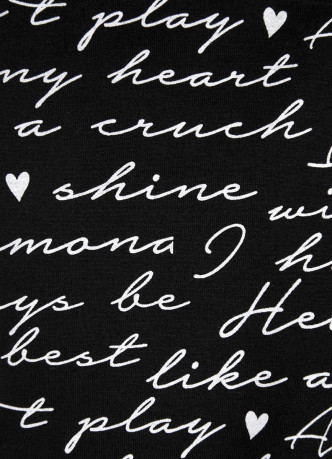 t play ♥ A
my heart
a cruch
♥ shine wi
mona I h
ys be He
best like a
t play ♥ A